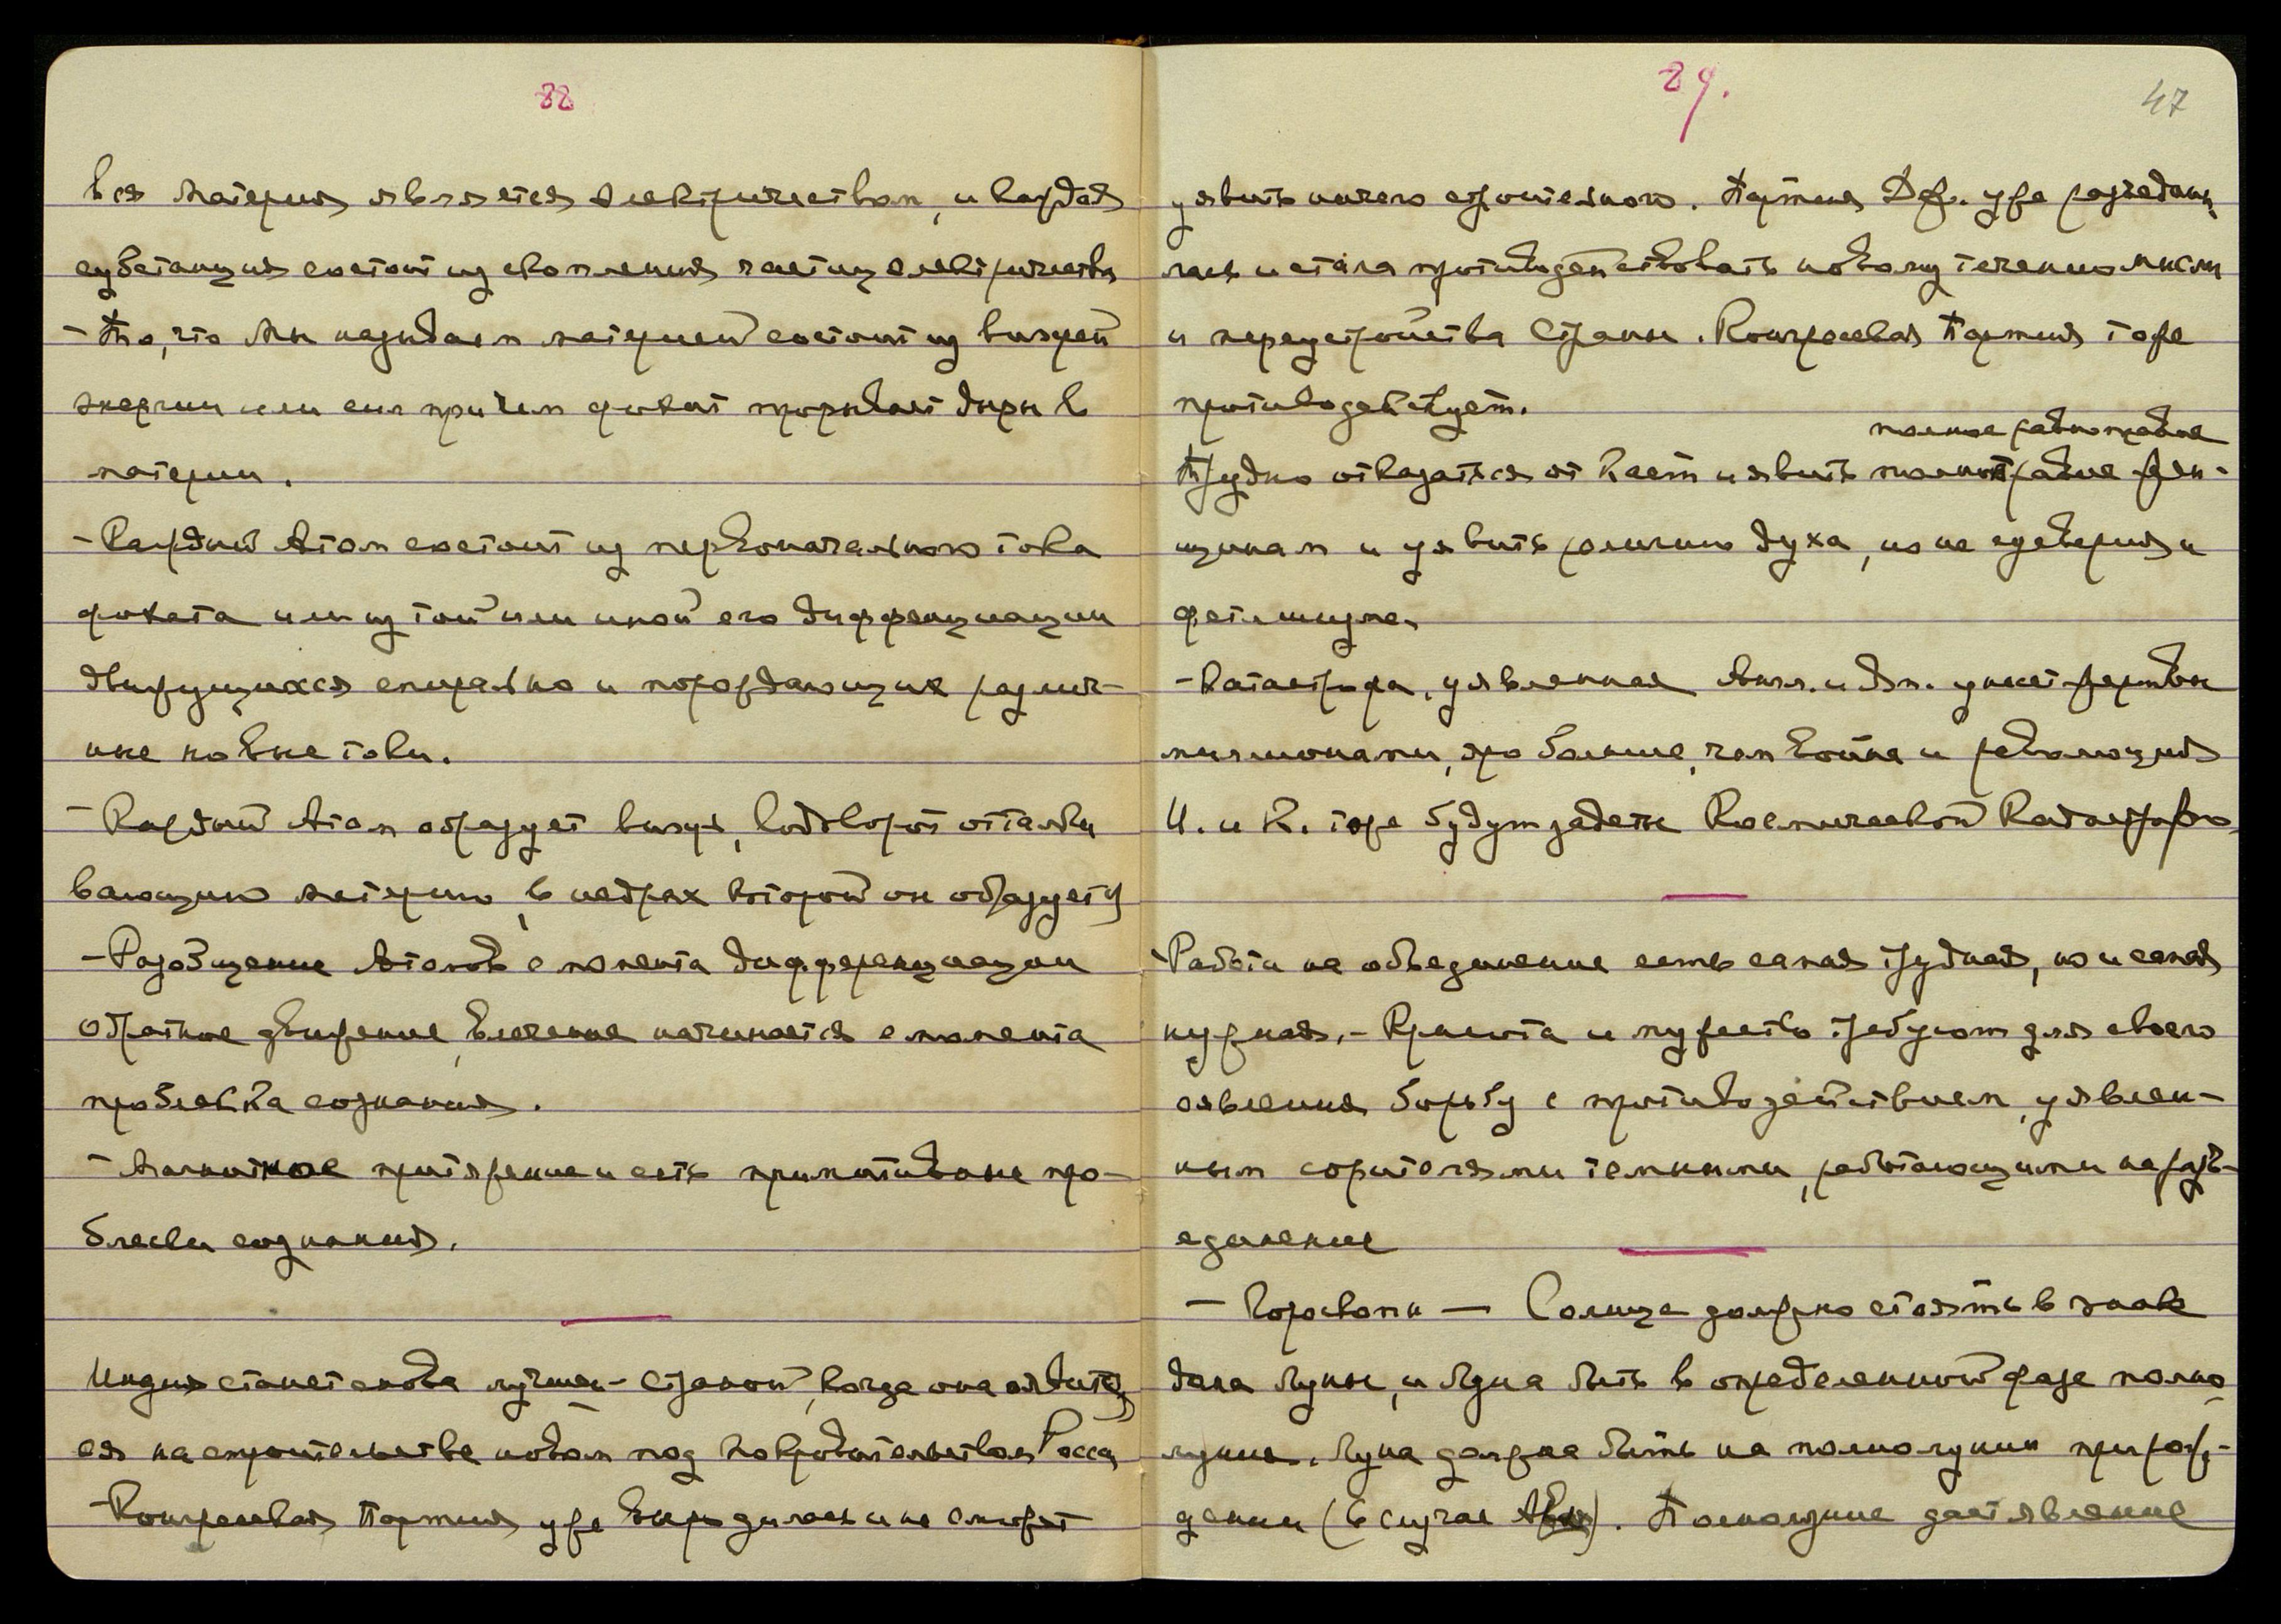 88
Вся материя является электричеством, и каждая
субстанция состоит из скопления частиц электричества
- То, что Мы называем материей состоит из вихрей
энергии или сил причем фохат прорывает дыры в
материи.
- Каждый Атом состоит из первоначального тока
фохата или из той или иной его диффенциации
движущихся спирально и порождающих различ-
ные новые токи.
- Каждый Атом образует вихрь, водоворот отталки
вающую материю, в недрах которой он образуется
- Разобщение Атомов с момента дифференциации
обратное движение, влечение начинается с момента
проблеска сознания.
- Магнитное притяжение и есть примитивные про-
блески сознания.
Индия станет снова лучшей - страной, когда она явится
ся на строительстве новом под Покровительством России
- Конгрессная Партия уже выродилась и не сможет
89.
47
уявить ничего строительного. Партия Дж. уже разъедини
лась и стала противодействовать новому течению мысли
и переустройства Страны. Конгрессная Партия тоже
противодействует.
полное равноправие
Трудно отказаться от каст и явить равноправие жен-
щинам и уявить религию духа, но не суеверия и
фетишизма
- Катастрофа, уявленная Англ. и Яп. унесет жертвы
миллионами, это больше, чем война и революция
И. и К. тоже будут задеты Космической Катастрофою
- Работа на объединение есть самая трудная, но и самая
нужная. - Красота и мужество требуют для своего
оявления борьбу с противодействием, уявлен-
ным служителями темными, работающими на разъ-
единение
- Гороскопы — Солнце должно стоять в знаке
дома Луны, и Луна быть в определенной фазе полно
луния. Луна должна быть на полнолунии при рож-
дении (в случае). Полнолуние дает явление